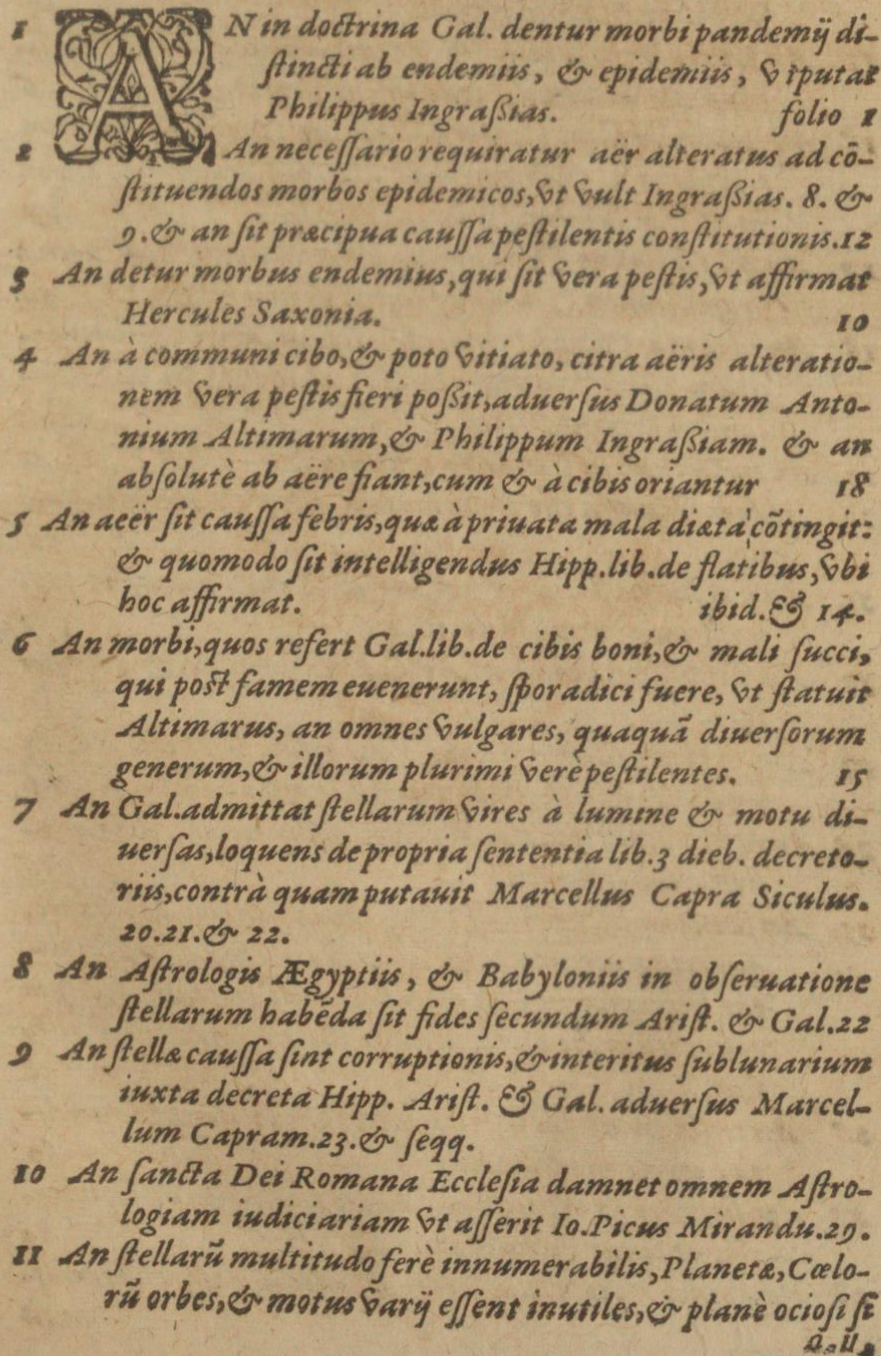 1 AN in doctrina Gal. dentur morbi pandemij di-
stincti ab endemiis, & epidemiis, vt putat
Philippus Ingraßias. folio 1
2 An necessario requiratur aër alteratus ad cō-
stituendos morbos epidemicos, vt vult Ingraßias. 8. &
9. & an sit præcipua caussa pestilentis constitutionis. 12
3 An detur morbus endemius, qui sit vera pestis, vt affirmat
Hercules Saxonia. 10
4 An à communi cibo, & poto vitiato, citra aëris alteratio-
nem vera pestis fieri poßit, aduersus Donatum Anto-
nium Altimarum, & Philippum Ingraßiam. & an
absolutè ab aëre fiant, cum & à cibis oriantur 18
5 An aeër sit caussa febris, quæ à priuata mala diæta cōtingit:
& quomodo sit intelligendus Hipp. lib. de flatibus, vbi
hoc affirmat. ibid. & 14.
6 An morbi, quos refert Gal. lib. de cibis boni, & mali succi,
qui post famem euenerunt, sporadici fuere, vt statuit
Altimarus, an omnes vulgares, quaquā diuersorum
generum, & illorum plurimi verè pestilentes. 15
7 An Gal. admittat stellarum vires à lumine & motu di-
uersas, loquens de propria sententia lib. 3 dieb. decreto-
riis, contrà quam putauit Marcellus Capra Siculus.
20. 21. & 22.
8 An Astrologis Ægyptiis, & Babyloniis in obseruatione
stellarum habēda sit fides secundum Arist. & Gal. 22
9 An stellæ caussa sint corruptionis, & interitus sublunarium
iuxta decreta Hipp. Arist. & Gal. aduersus Marcel-
lum Capram. 23. & seqq.
10 An sancta Dei Romana Ecclesia damnet omnem Astro-
logiam iudiciariam vt asserit Io. Picus Mirandu. 29.
11 An stellarū multitudo ferè innumerabilis, Planetæ, Cœlo-
rū orbes, & motus varij essent inutiles, & planè ociosi si